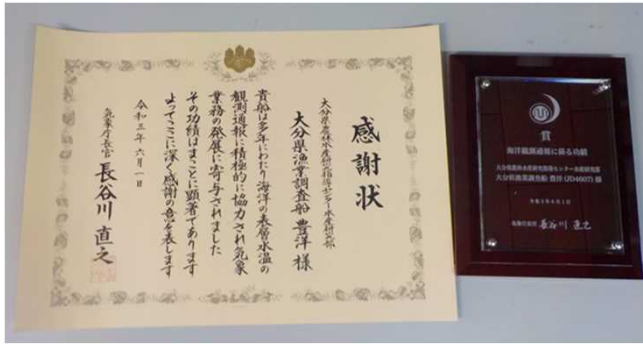 感謝状
大分県農林水産研究指導センター水産研究部
大分県漁業調査船 豊洋 様
貴船は多年にわたり海洋の表層水温の
観測通報に積極的に協力され気象
業務の発展に寄与されました
その功績はまことに顕著であります
よってここに深く感謝の意を表します
令和三年六月一日
気象庁長官 長谷川 直之
賞
海洋観測通報に係る功績
大分県農林水産研究指導センター水産研究部
大分県漁業調査船 豊洋 (JD4607) 様
令和3年6月1日
気象庁長官 長谷川 直之